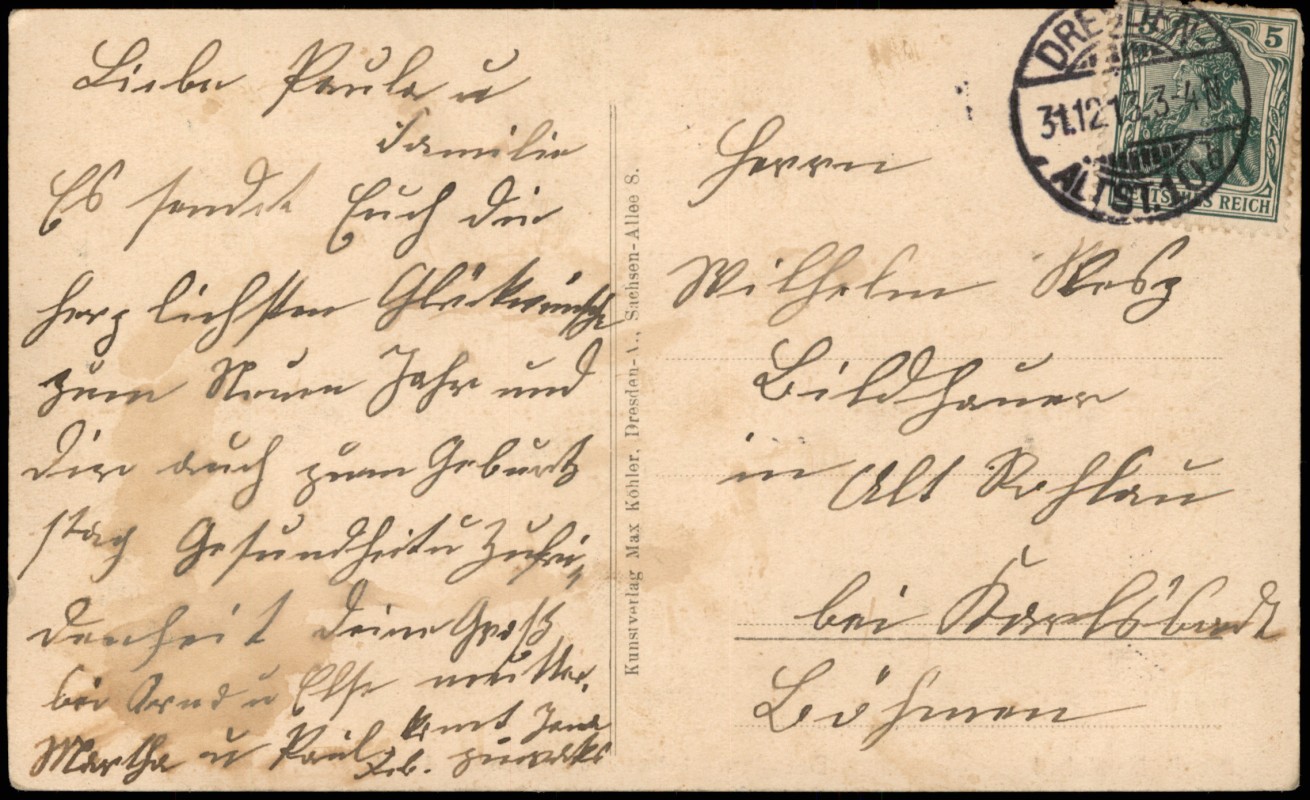 Liebe Paula u
Familie
Es sendet Euch die
herzlichsten Glückwünsche
zum Neuen Jahr und
Dir auch zum Geburts
stag Gesundheit u Zufri-
denheit Deine Groß
bei u Else mutter.
Martha u Paul
Kunstverlag Max Köhler, Dresden-A., Sachsen-Allee 8.
DRESDEN
31.12.13. 3-4 N
ALTST. 10
5
DEUTSCHES REICH
Herrn
Wilhelm
Bildhauer
in Alt Rohlau
bei Karlsbad
Böhmen